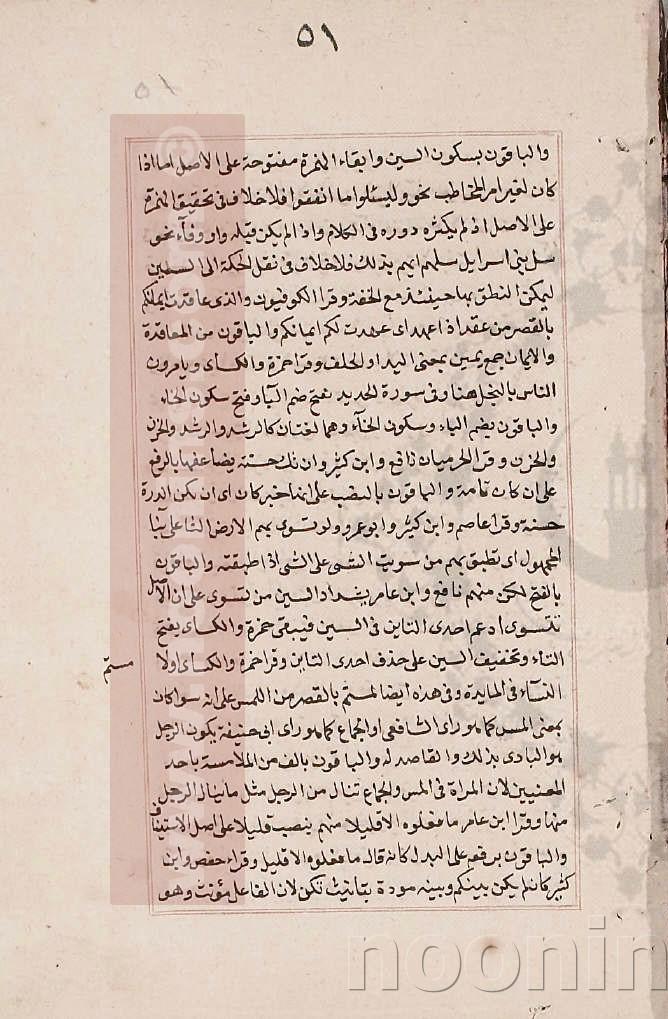 ٥١
٥١
والباقون بسكون السين وابقاء الهمزة مفتوحة على الاصل اما اذا
كان لغير امر المخاطب نحو وليسئلوا ما انفقوا فلا خلاف فى تحقيق الهمزة
على الاصل اذ لم يكثر دوره فى الكلام واذا لم يكن قبله واو وفاء نحو
سل بنى اسرايل سلهم ايهم بذلك فلا خلاف فى نقل الحركة الى السين
ليمكن النطق بها حينئذ مع الخفة وقرا الكوفيون والذى عاقدت ايمانكم
بالقصر من عقد اذا عهد اى عهدت لكم ايمانكم والباقون من المعاقدة
والايمان جمع يمين بمعنى اليد او الحلف وقرا حمزة والكساى ويامرون
الناس بالبخل هنا وفى سورة الحديد بفتح ضم البآء وفتح سكون الخاء
والباقون بضم الباء وسكون الخآء وهما لغتان كالرشد والرشد والحزن
والحزن وقرا الحرميان نافع وابن كثير وان تك حسنة يضاعفها بالرفع
على ان كان تامة والباقون بالنصب على انها خبر كان اى ان تكن الذرة
حسنة وقرا عاصم وابن كثير وابو عمرو ولو تسوى بهم الارض التا على بنا
المجهول اى تطبق بهم من سويت الشى على الشى اذا طبقته والباقون
بالفتح لكن منهم نافع وابن عامر يشددا السين من تسوى على ان الاصل
تتسوى ادغم احدى التاين فى السين فيبقى حمزة والكساى بفتح
التاء وتخفيف السين على حذف احدى التاين وقرا حمزة والكساى اولا
مستم
النسآء فى المايدة وفى هذه ايضا لمستم بالقصر من اللمس على انه سوا كان
بمعنى المس كما هو راى الشافعى او الجماع كما هو راى ابى حنيفة يكون الرجل
هو البادى بذلك والقاصد له والباقون بالف من الملامسة باحد
المعنيين لان المراة فى المس والجماع تنال من الرجل مثل ما ينال الرجل
منها وقرا ابن عامر ما فعلوه الا قليلا منهم بنصب قليلا على اصل الاستيناف
والباقون برفعه على البدل كانه قال ما فعلوه الا قليل وقراء حفص وابن
كثير كان لم يكن بينكم وبينه مودة بتانيث تكن لان الفاعل مؤنث وهو
noonin